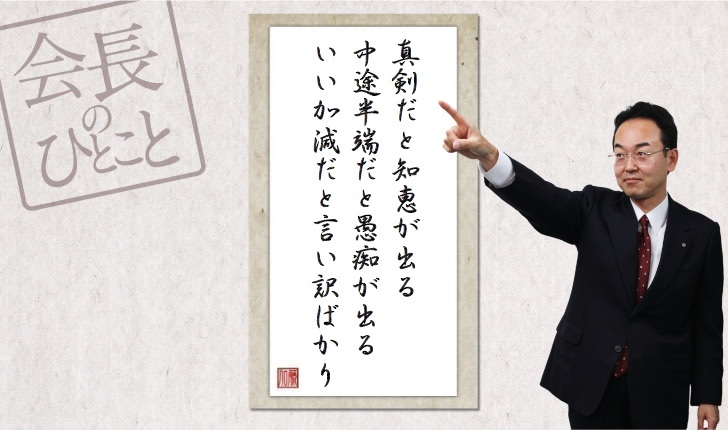 会長
の
ひとこと
真剣だと知恵が出る
中途半端だと愚痴が出る
いい加減だと言い訳ばかり